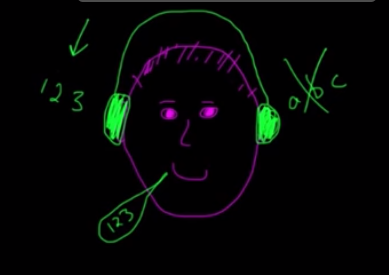 123
abc
123